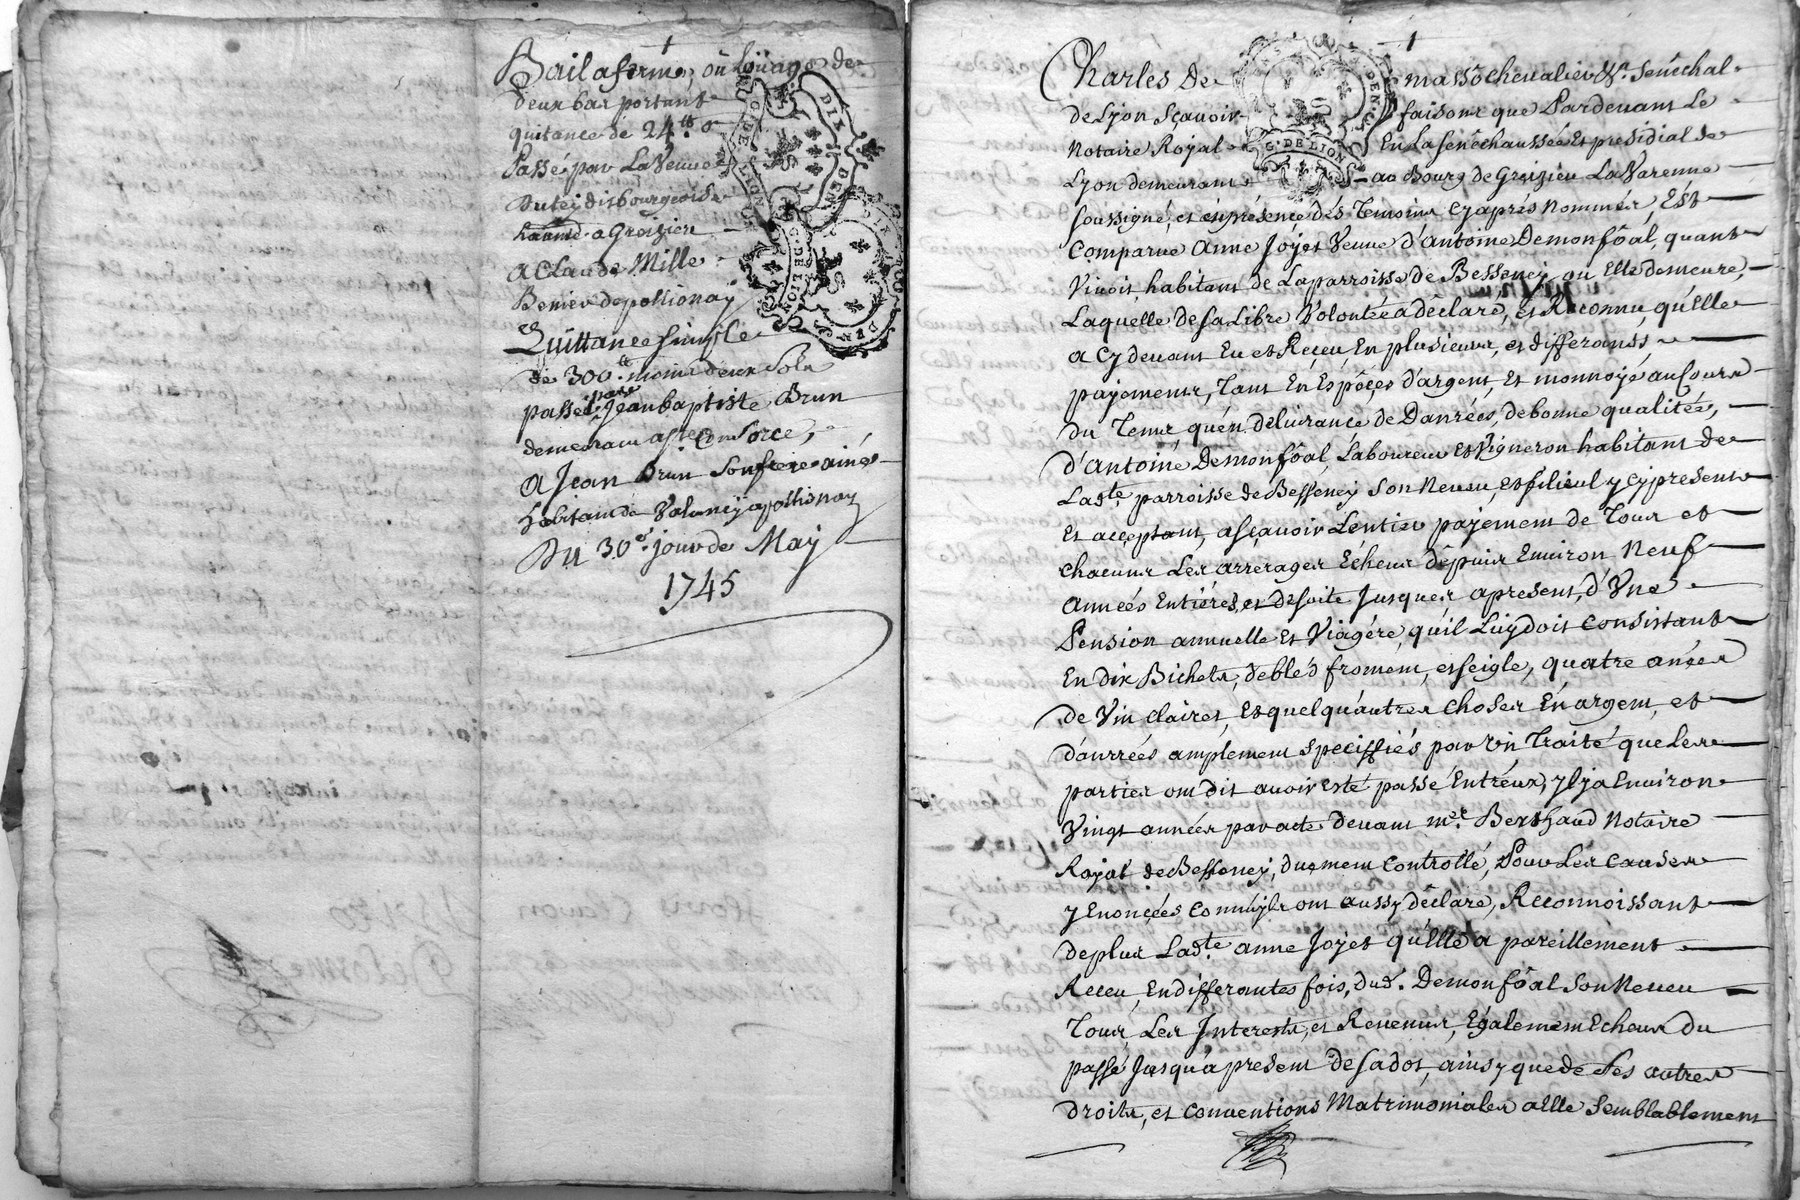 Bail a ferme, ou Loüage de
deux bas portant
quitance de 24.tt
Passé par La Veuve
Dutey dit bourgeois
a Greizieu
A Claude Mille
Benier de pollionay
Et
Quittance simple
de 300.tt moins deux Sols
passée par Jean baptiste Brun
demeurant a Ste. Consorce,
A Jean Brun Son frere ainé
habitant de Valency a pollionay
Du 30.e jour de May
1745
DIX DEN.
G. DE LION
DIX DEN.
G. DE LION
Charles De masso chevalier &.a Senechal
de Lyon Sçavoir faisons que Pardevant Le
Notaire Royal En La senéchaussée Et presidial de
Lyon demeurant au Bourg de Greizieu La Varenne
soussigné, et en présence dés Temoins Cy aprés Nommés, Est
Comparue Anne Joyet Veuve d'antoine Demonfôal, quant
Vivoit, habitant de La parroisse de Bessenay ou Elle demeure,
Laquelle de sa Libre Volontée a déclaré, et Reconnu, qu'Elle
a Cy devant Eu et Reçeu En plusieurs, et differants
payements, Tant En Espéçes d'argent, Et monnoye au Cours
du Tems, qu'en délivrance de Danrées, de bonne qualitée,
d'Antoine Demonfôal, Laboureur Et Vigneron habitant de
Lad.te parroisse de Bessenay Son Neveu, et filieul y Cy present
Et acceptant, a sçavoir L'entier payement de Tous et
chacuns Les arrerages Echeus dépuis Environ Neuf
Années Entiéres, et de suite Jusques a present, d'Une
Pension annuelle Et Viagére, qu'il Luy doit Consistant
En dix Bichets, de bléd froment, et seigle, quatre anées
de Vin clairet, Et quelqu'autres choses En argent, et
danrées amplement specissiés par Un Traité que Les
parties ont dit avoir esté passé Entr'eux, y l'y a Environ
Vingt années par acte devant m.e Berthaud Notaire
Royal de Bessenay, duement Controllé, Pour Les Causes
y Enoncées ont aussy déclaré, Reconnoissant
de plus Lad.te anne Joyet qu'Elle a pareillement
Receu, En differantes fois, dud. Demonfôal Son Neveu
Tous, Les Interests, et Revenus, Egalement Echeus du
passé Jusqu'a present de sa dot, ainsy que de Ses autres
droits, et Conventions Matrimoniales a Elle Semblablement
DIX DEN.
G. DE LION